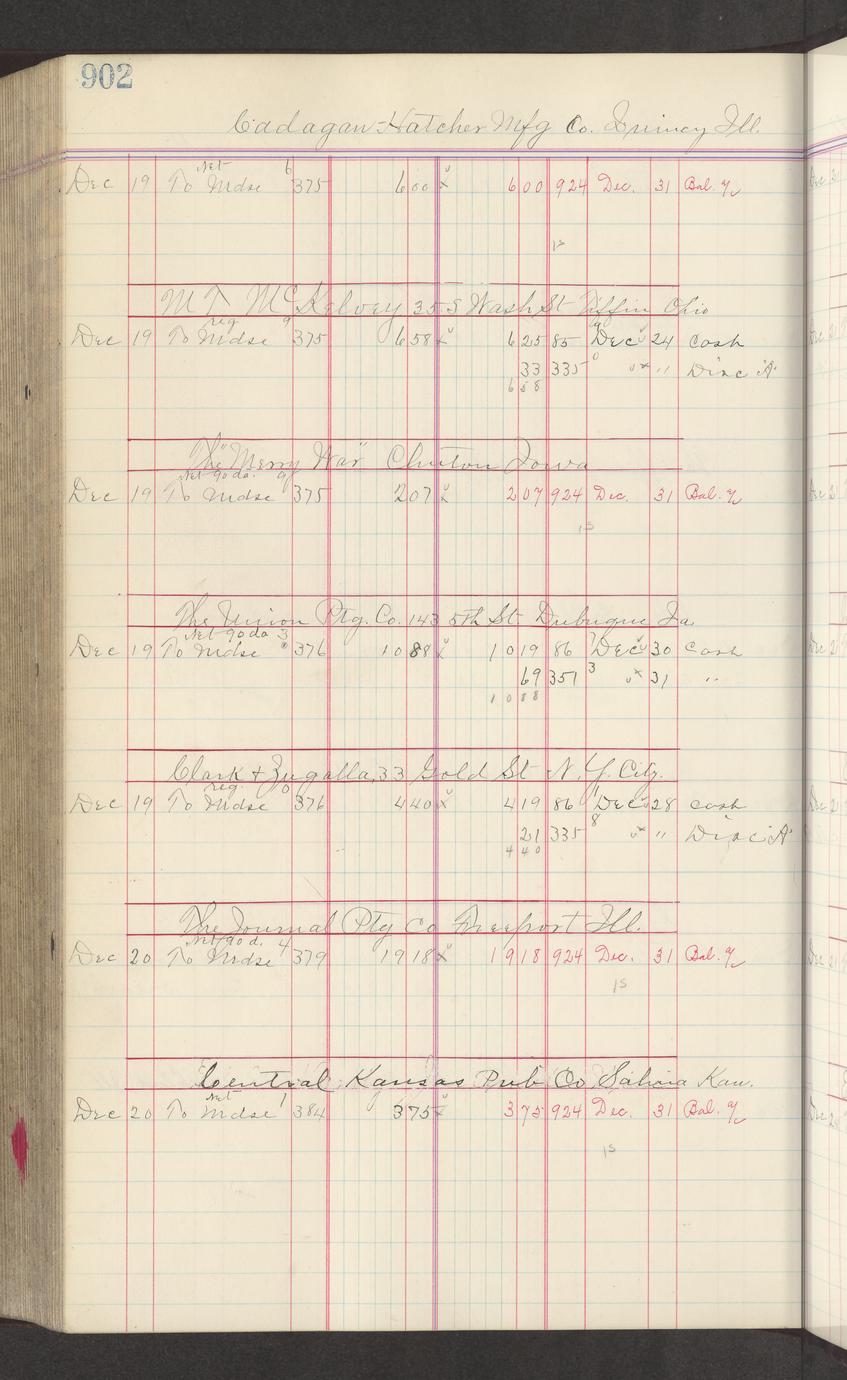 902
Cadagan-Hatcher Mfg Co. Quincy Ill.
Net 6
Dec 19 To Mdse 375 600 600 924 Dec. 31 Bal. a/c
15
M T McKelvey 35 S Wash St Tiffin Ohio
reg 9
Dec 19 To Mdse 375 658 625 85 Dec 24 Cash
33 335 " Disc "A"
658
The "Merry War" Clinton Iowa
Net 90 da.
Dec 19 To Mdse 375 207 207 924 Dec. 31 Bal. a/c
15
The Union Ptg. Co. 143 5th St. Dubuque Ia.
Net 90 da 3
Dec 19 To Mdse 376 1088 1019 86 Dec 30 Cash
69 351 31 "
1088
Clark & Zugalla, 33 Gold St N. Y. City.
reg. 0
Dec 19 To Mdse 376 440 419 86 Dec 28 Cash
21 335 " Disc "A"
440
The Journal Ptg Co Freeport Ill.
Net 90 d. 4
Dec 20 To Mdse 379 1918 1918 924 Dec. 31 Bal. a/c
15
Central Kansas Pub Co Salina Kan.
Net 1
Dec 20 To Mdse 384 375 375 924 Dec. 31 Bal. a/c
15